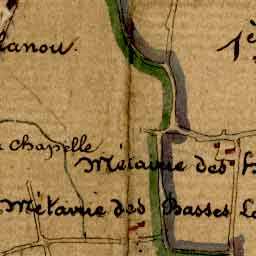 lanou.
1è
Chapelle
Métairie des
Métairie des Basses